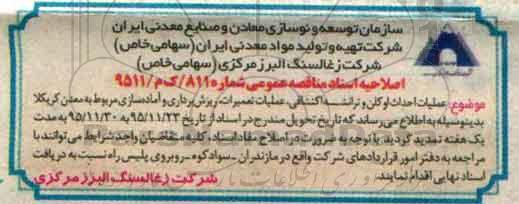 سازمان توسعه و نوسازی معادن و صنایع معدنی ایران
شرکت تهیه و تولید مواد معدنی ایران (سهامی خاص)
شرکت زغالسنگ البرز مرکزی (سهامی خاص)
اصلاحیه اسناد مناقصه عمومی شماره ۸۱۱/ک م/۹۵۱۱
موضوع: عملیات احداث اوکلن و ترانشه اکتشافی، عملیات تعمیرات، ریزش برداری و آماده سازی مربوط به معدن کریکلا
بدینوسیله به اطلاع می رساند که تاریخ تحویل مندرج در اسناد از تاریخ ۹۵/۱۱/۲۳ به ۹۵/۱۱/۳۰ به مدت
یک هفته تمدید گردید. با توجه به ضرورت در اصلاح مفاد اسناد، کلیه متقاضیان واجد شرایط می توانند با
مراجعه به دفتر امور قراردادهای شرکت واقع در مازندران - سوادکوه - روبروی پلیس راه نسبت به دریافت
اسناد نهایی اقدام نمایند.
شرکت زغالسنگ البرز مرکزی